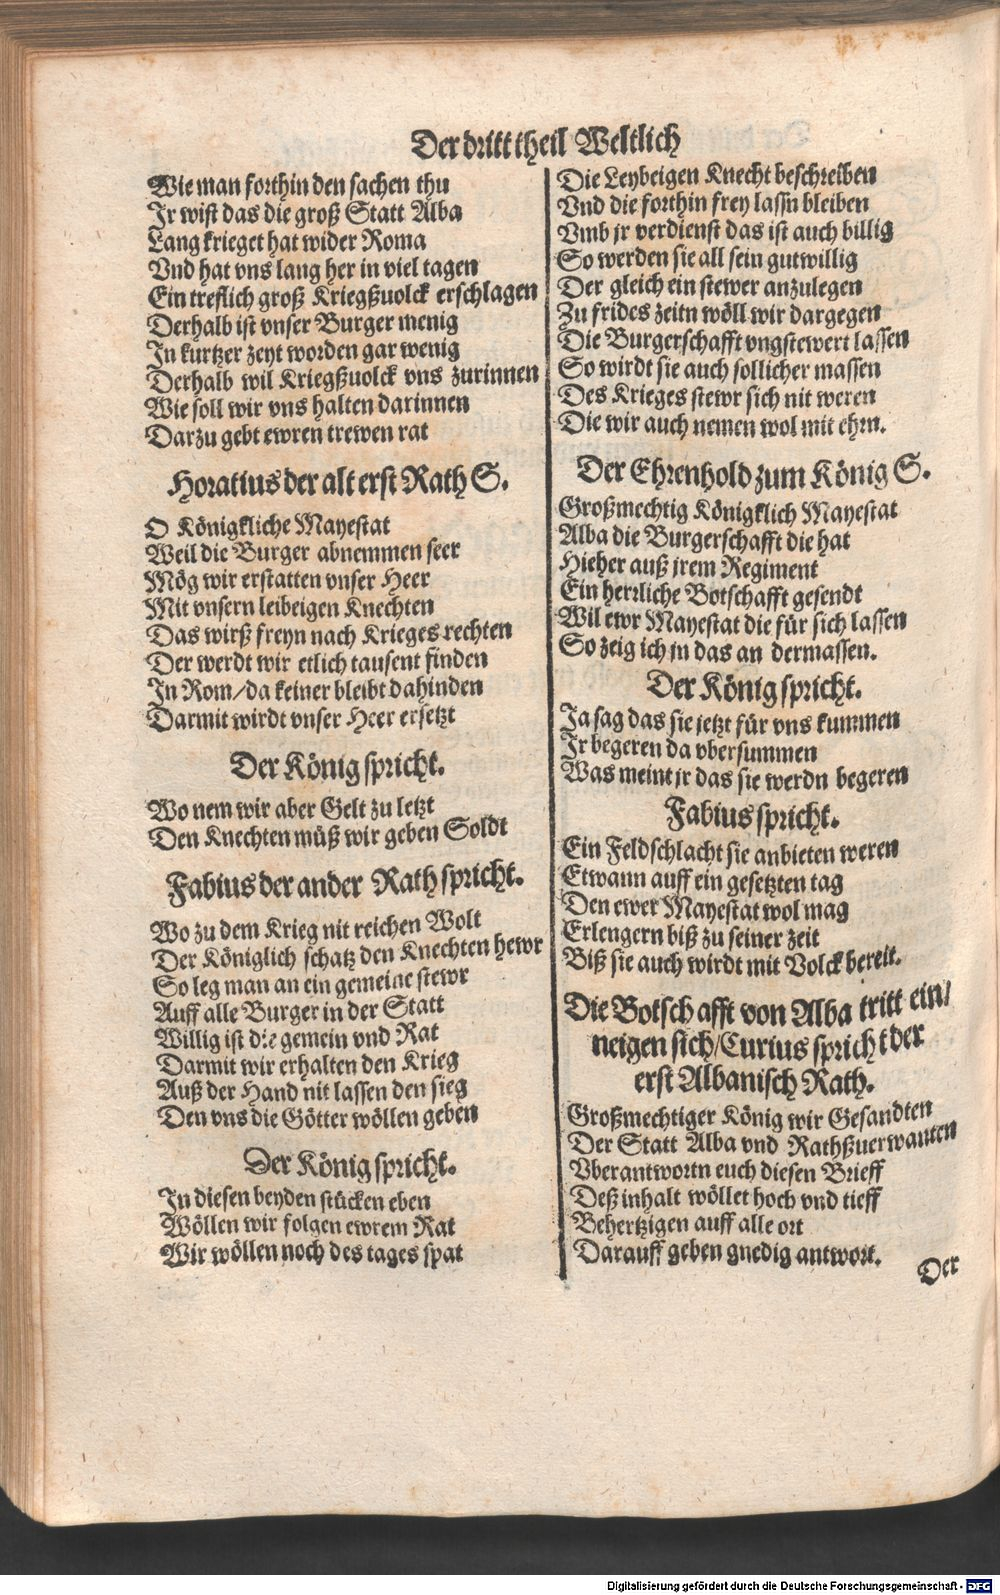 Der dritt theil Weltlich
Wie man forthin den sachen thu
Jr wist das die groß Statt Alba
Lang krieget hat wider Roma
Vnd hat vns lang her in viel tagen
Ein treflich groß Kriegßuolck erschlagen
Derhalb ist vnser Burger menig
Jn kurtzer zeyt worden gar wenig
Derhalb wil Kriegßuolck vns zurinnen
Wie soll wir vns halten darinnen
Darzu gebt ewren trewen rat
Horatius der alt erst Rath S.
O Königkliche Mayestat
Weil die Burger abnemmen seer
Mög wir erstatten vnser Heer
Mit vnsern leibeigen Knechten
Das wirß freyn nach Krieges rechten
Der werdt wir etlich tausent finden
Jn Rom/da keiner bleibt dahinden
Darmit wirdt vnser Heer ersetzt
Der König spricht.
Wo nem wir aber Gelt zu letzt
Den Knechten müß wir geben Soldt
Fabius der ander Rath spricht.
Wo zu dem Krieg nit reichen Wolt
Der Königlich schatz den Knechten hewr
So leg man an ein gemeine stewr
Auff alle Burger in der Statt
Willig ist die gemein vnd Rat
Darmit wir erhalten den Krieg
Auß der Hand nit lassen den sieg
Den vns die Götter wöllen geben
Der König spricht.
Jn diesen beyden stücken eben
Wöllen wir folgen ewrem Rat
Wir wöllen noch des tages spat
Die Leybeigen Knecht beschreiben
Vnd die forthin frey lassn bleiben
Vmb jr verdienst das ist auch billig
So werden sie all sein gutwillig
Der gleich ein stewer anzulegen
Zu frides zeitn wöll wir dargegen
Die Burgerschafft vngstewert lassen
So wirdt sie auch sollicher massen
Des Krieges stewr sich nit weren
Die wir auch nemen wol mit ehrn.
Der Ehrenhold zum König S.
Großmechtig Königklich Mayestat
Alba die Burgerschafft die hat
Hieher auß jrem Regiment
Ein herrliche Botschafft gesendt
Wil ewr Mayestat die für sich lassen
So zeig ich jn das an dermassen.
Der König spricht.
Ja sag das sie jetzt für vns kummen
Jr begeren da vbersummen
Was meint jr das sie werdn begeren
Fabius spricht.
Ein Feldschlacht sie anbieten weren
Etwann auff ein gesetzten tag
Den ewer Mayestat wol mag
Erlengern biß zu seiner zeit
Biß sie auch wirdt mit Volck bereit.
Die Botschafft von Alba tritt ein/
neigen sich/Curius spricht der
erst Albanisch Rath.
Großmechtiger König wir Gesandten
Der Statt Alba vnd Rathßuerwanten
Vberantwortn euch diesen Brieff
Deß inhalt wöllet hoch vnd tieff
Behertzigen auff alle ort
Darauff geben gnedig antwort.
Der
Digitalisierung gefördert durch die Deutsche Forschungsgemeinschaft - DFG